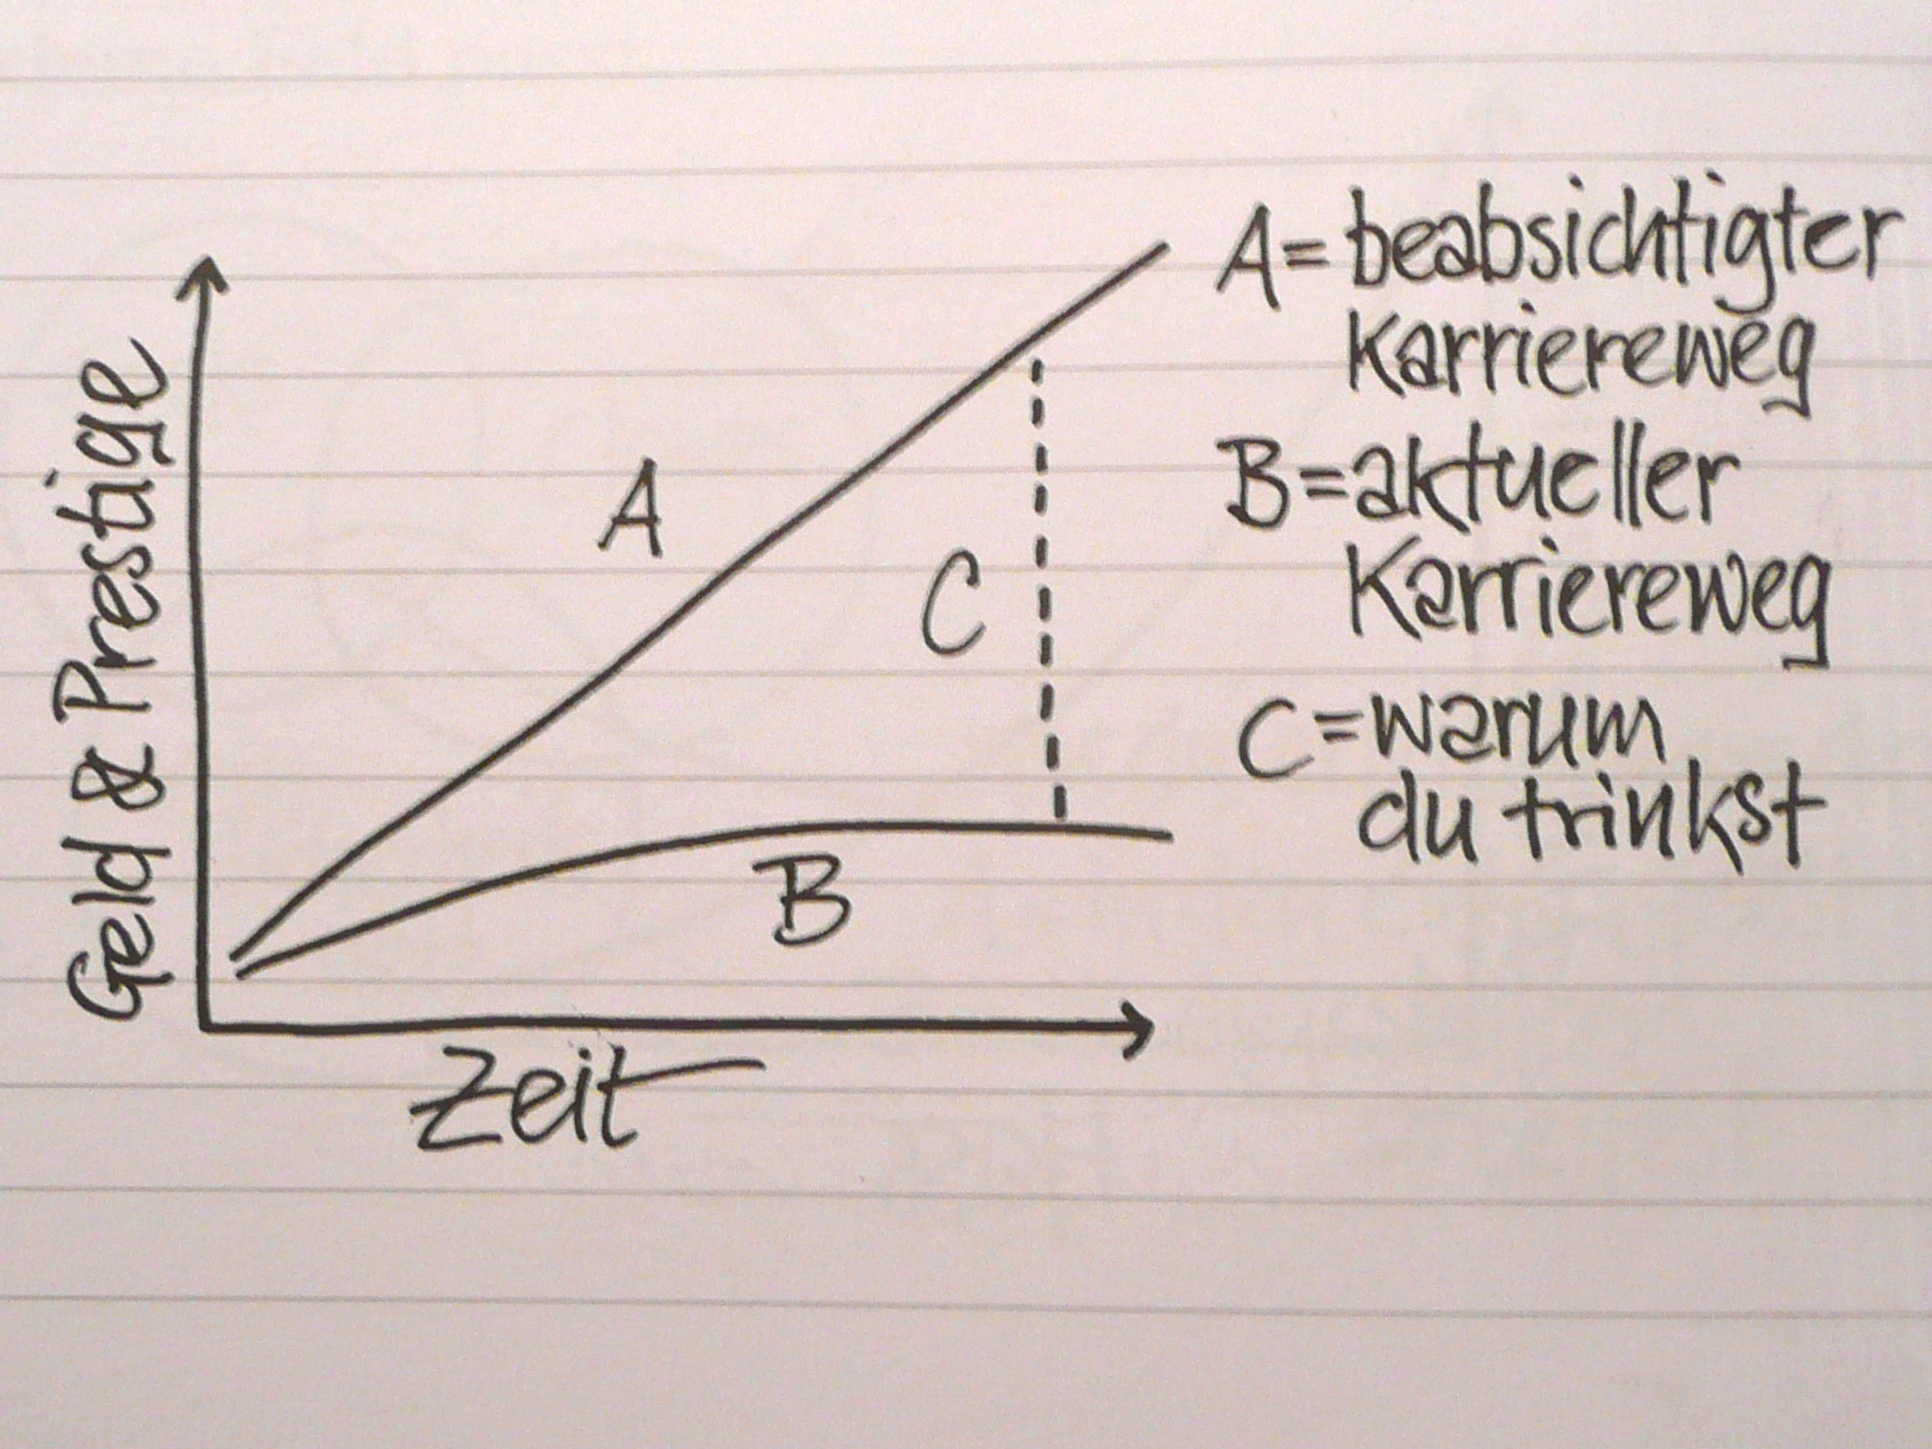 Geld & Prestige
A
B
C
Zeit
A= beabsichtigter
Karriereweg
B=aktueller
Karriereweg
C=warum
du trinkst